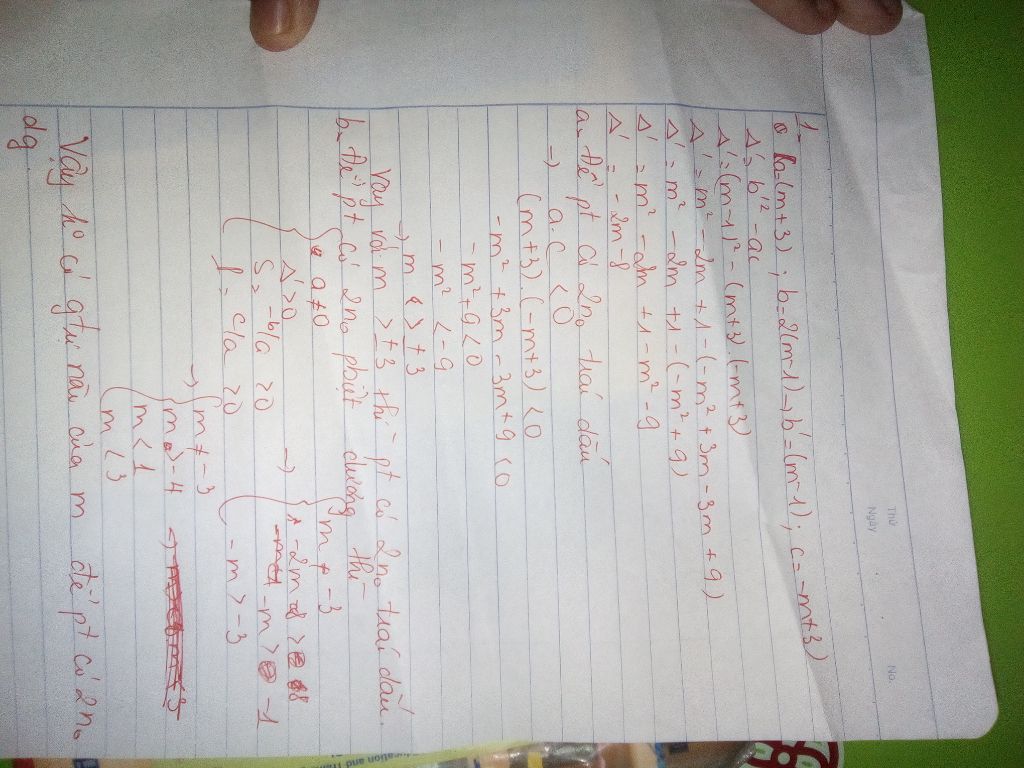 Thứ
Ngày
No.
1
a=(m+3) ; b=2(m-1)→b'=(m-1) ; c=-m+3)
Δ'= b'² - ac
Δ'=(m-1)² - (m+3).(-m+3)
Δ' = m² - 2m + 1 - (-m² + 3m - 3m + 9)
Δ' = m² - 2m + 1 - (-m² + 9)
Δ' = m² - 2m + 1 - m² - 9
Δ' = -2m - 8
a- để pt có 2n₀ trái dấu
→ a.c < 0
(m+3).(-m+3) < 0
-m² + 3m - 3m + 9 < 0
-m² + 9 < 0
-m² < -9
→ m > ±3
Vậy với m > ±3 thì pt có 2n₀ trái dấu.
b- để pt có 2n₀ phbiệt dương thì
{ a ≠ 0 → { m ≠ -3
Δ' > 0 -2m > 8
S = -b/a > 0 -m > -1
P = c/a > 0 -m > -3
→ { m ≠ -3
m > -4
{ m < 1
m < 3
Vậy k° có gtrị nào của m để pt có 2n₀
dg
ucation and Train